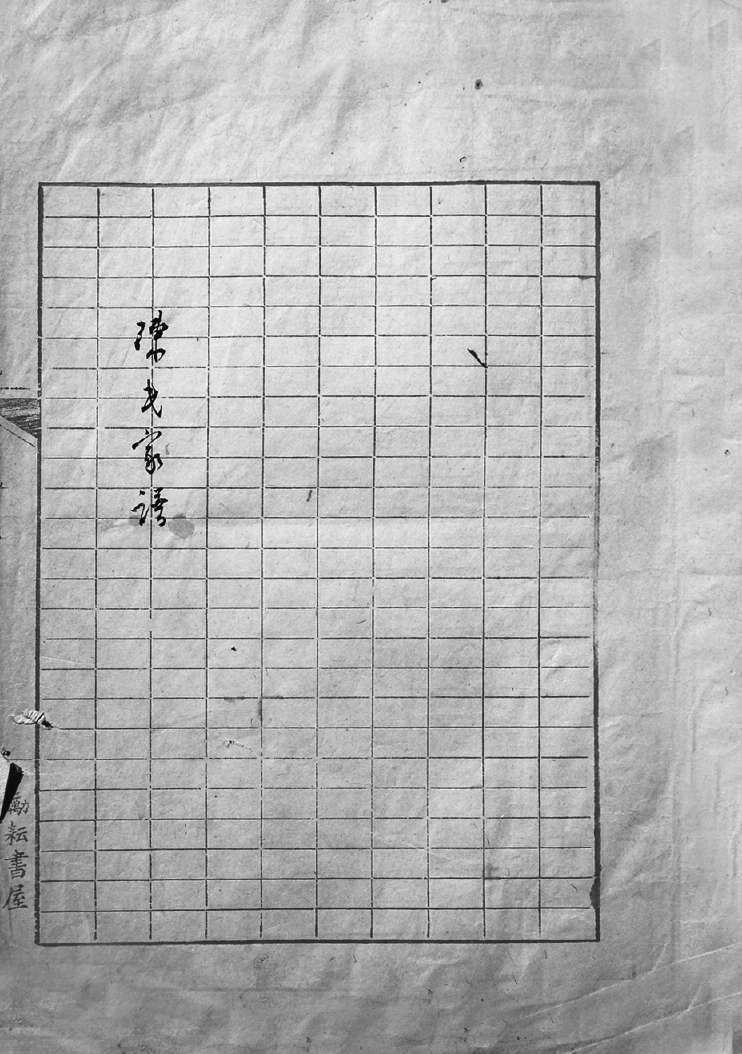 陳氏家譜
勵耘書屋